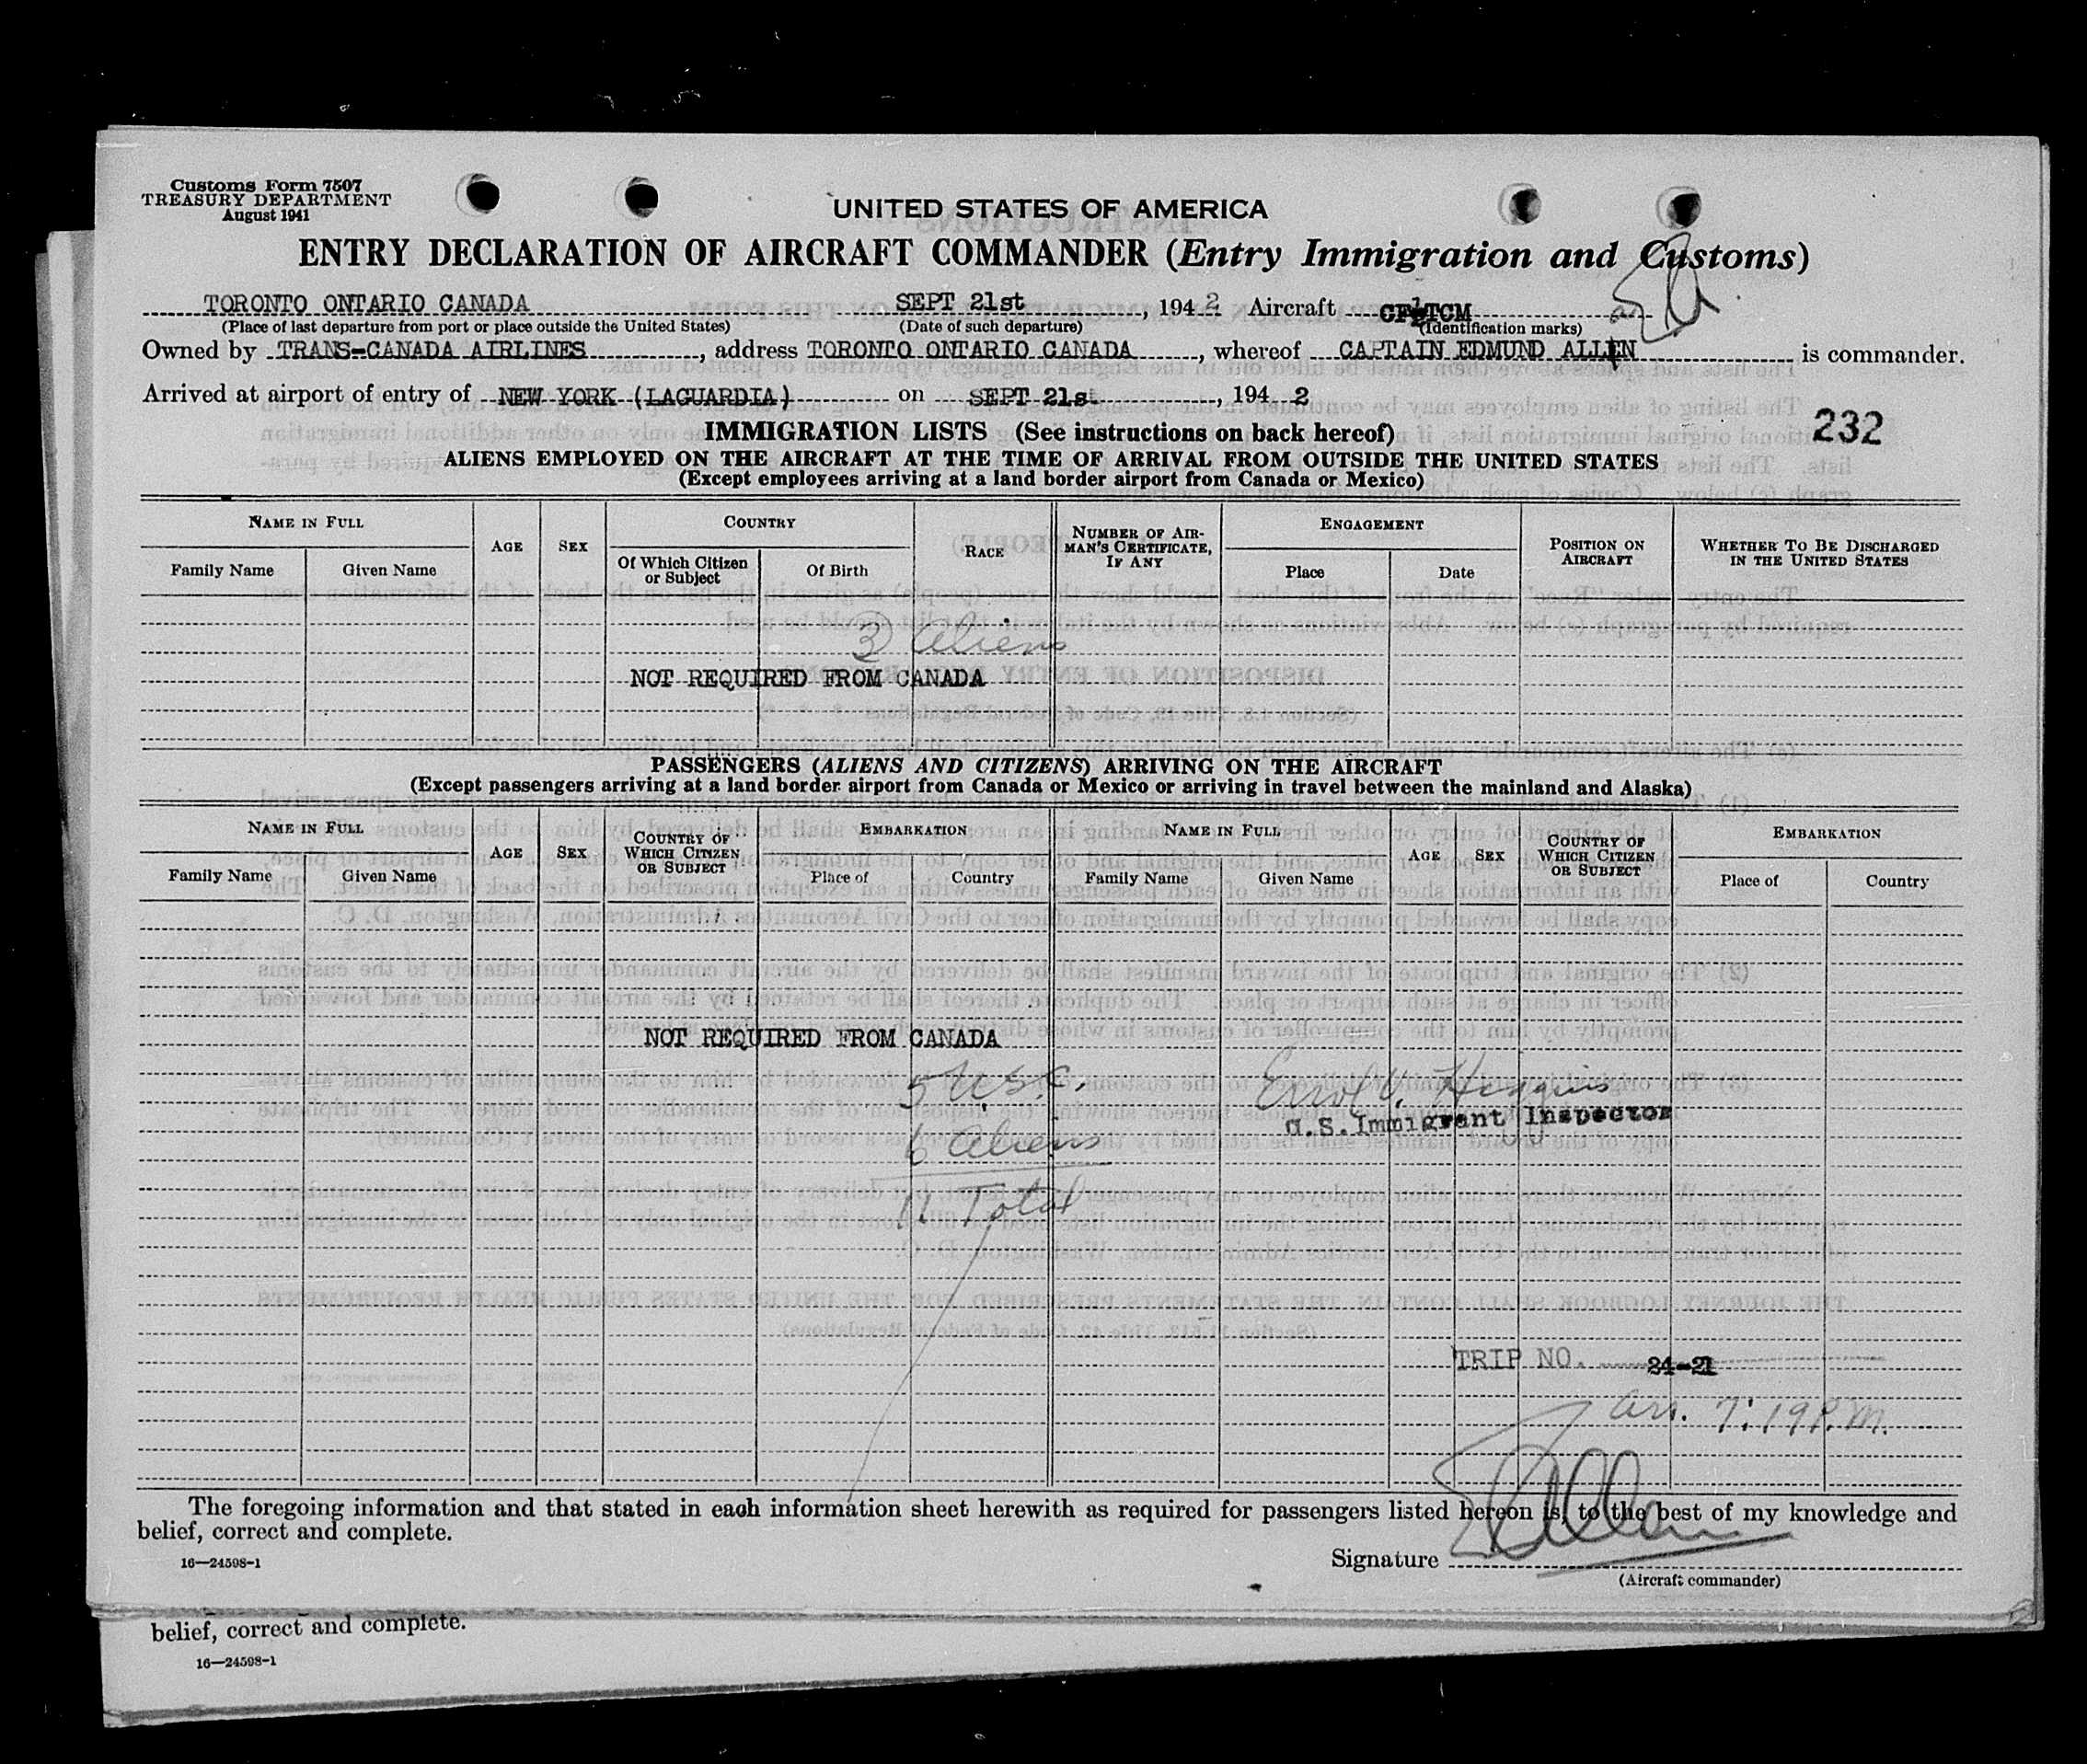 Customs Form 7507
TREASURY DEPARTMENT
August 1941
UNITED STATES OF AMERICA
ENTRY DECLARATION OF AIRCRAFT COMMANDER (Entry Immigration and Customs)
TORONTO ONTARIO CANADA SEPT 21st, 1942 Aircraft CF TCM
(Place of last departure from port or place outside the United States) (Date of such departure) (Identification marks)
Owned by TRANS-CANADA AIRLINES, address TORONTO ONTARIO CANADA, whereof CAPTAIN EDMUND ALLEN is commander.
Arrived at airport of entry of NEW YORK (LAGUARDIA) on SEPT 21st, 1942
232
IMMIGRATION LISTS (See instructions on back hereof)
ALIENS EMPLOYED ON THE AIRCRAFT AT THE TIME OF ARRIVAL FROM OUTSIDE THE UNITED STATES
(Except employees arriving at a land border airport from Canada or Mexico)
NAME IN FULL AGE SEX COUNTRY RACE NUMBER OF AIRMAN'S CERTIFICATE, IF ANY ENGAGEMENT POSITION ON AIRCRAFT WHETHER TO BE DISCHARGED IN THE UNITED STATES
Family Name Given Name Of Which Citizen or Subject Of Birth Place Date
3 Aliens
NOT REQUIRED FROM CANADA
PASSENGERS (ALIENS AND CITIZENS) ARRIVING ON THE AIRCRAFT
(Except passengers arriving at a land border airport from Canada or Mexico or arriving in travel between the mainland and Alaska)
NAME IN FULL AGE SEX COUNTRY OF WHICH CITIZEN OR SUBJECT EMBARKATION NAME IN FULL AGE SEX COUNTRY OF WHICH CITIZEN OR SUBJECT EMBARKATION
Family Name Given Name Place of Country Family Name Given Name Place of Country
NOT REQUIRED FROM CANADA
5 U.S.C. Errol V.
U.S. Immigrant Inspector
6 Aliens
11 Total
TRIP NO. 24-21
arr. 7:19 P.M.
The foregoing information and that stated in each information sheet herewith as required for passengers listed hereon is, to the best of my knowledge and
belief, correct and complete.
16—24598-1
Signature E Allen
(Aircraft commander)
belief, correct and complete.
16—24598-1